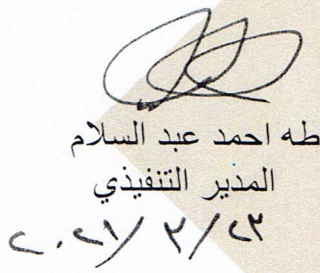 طه احمد عبد السلام
المدير التنفيذي
٢٠٢١/٣/٢٣